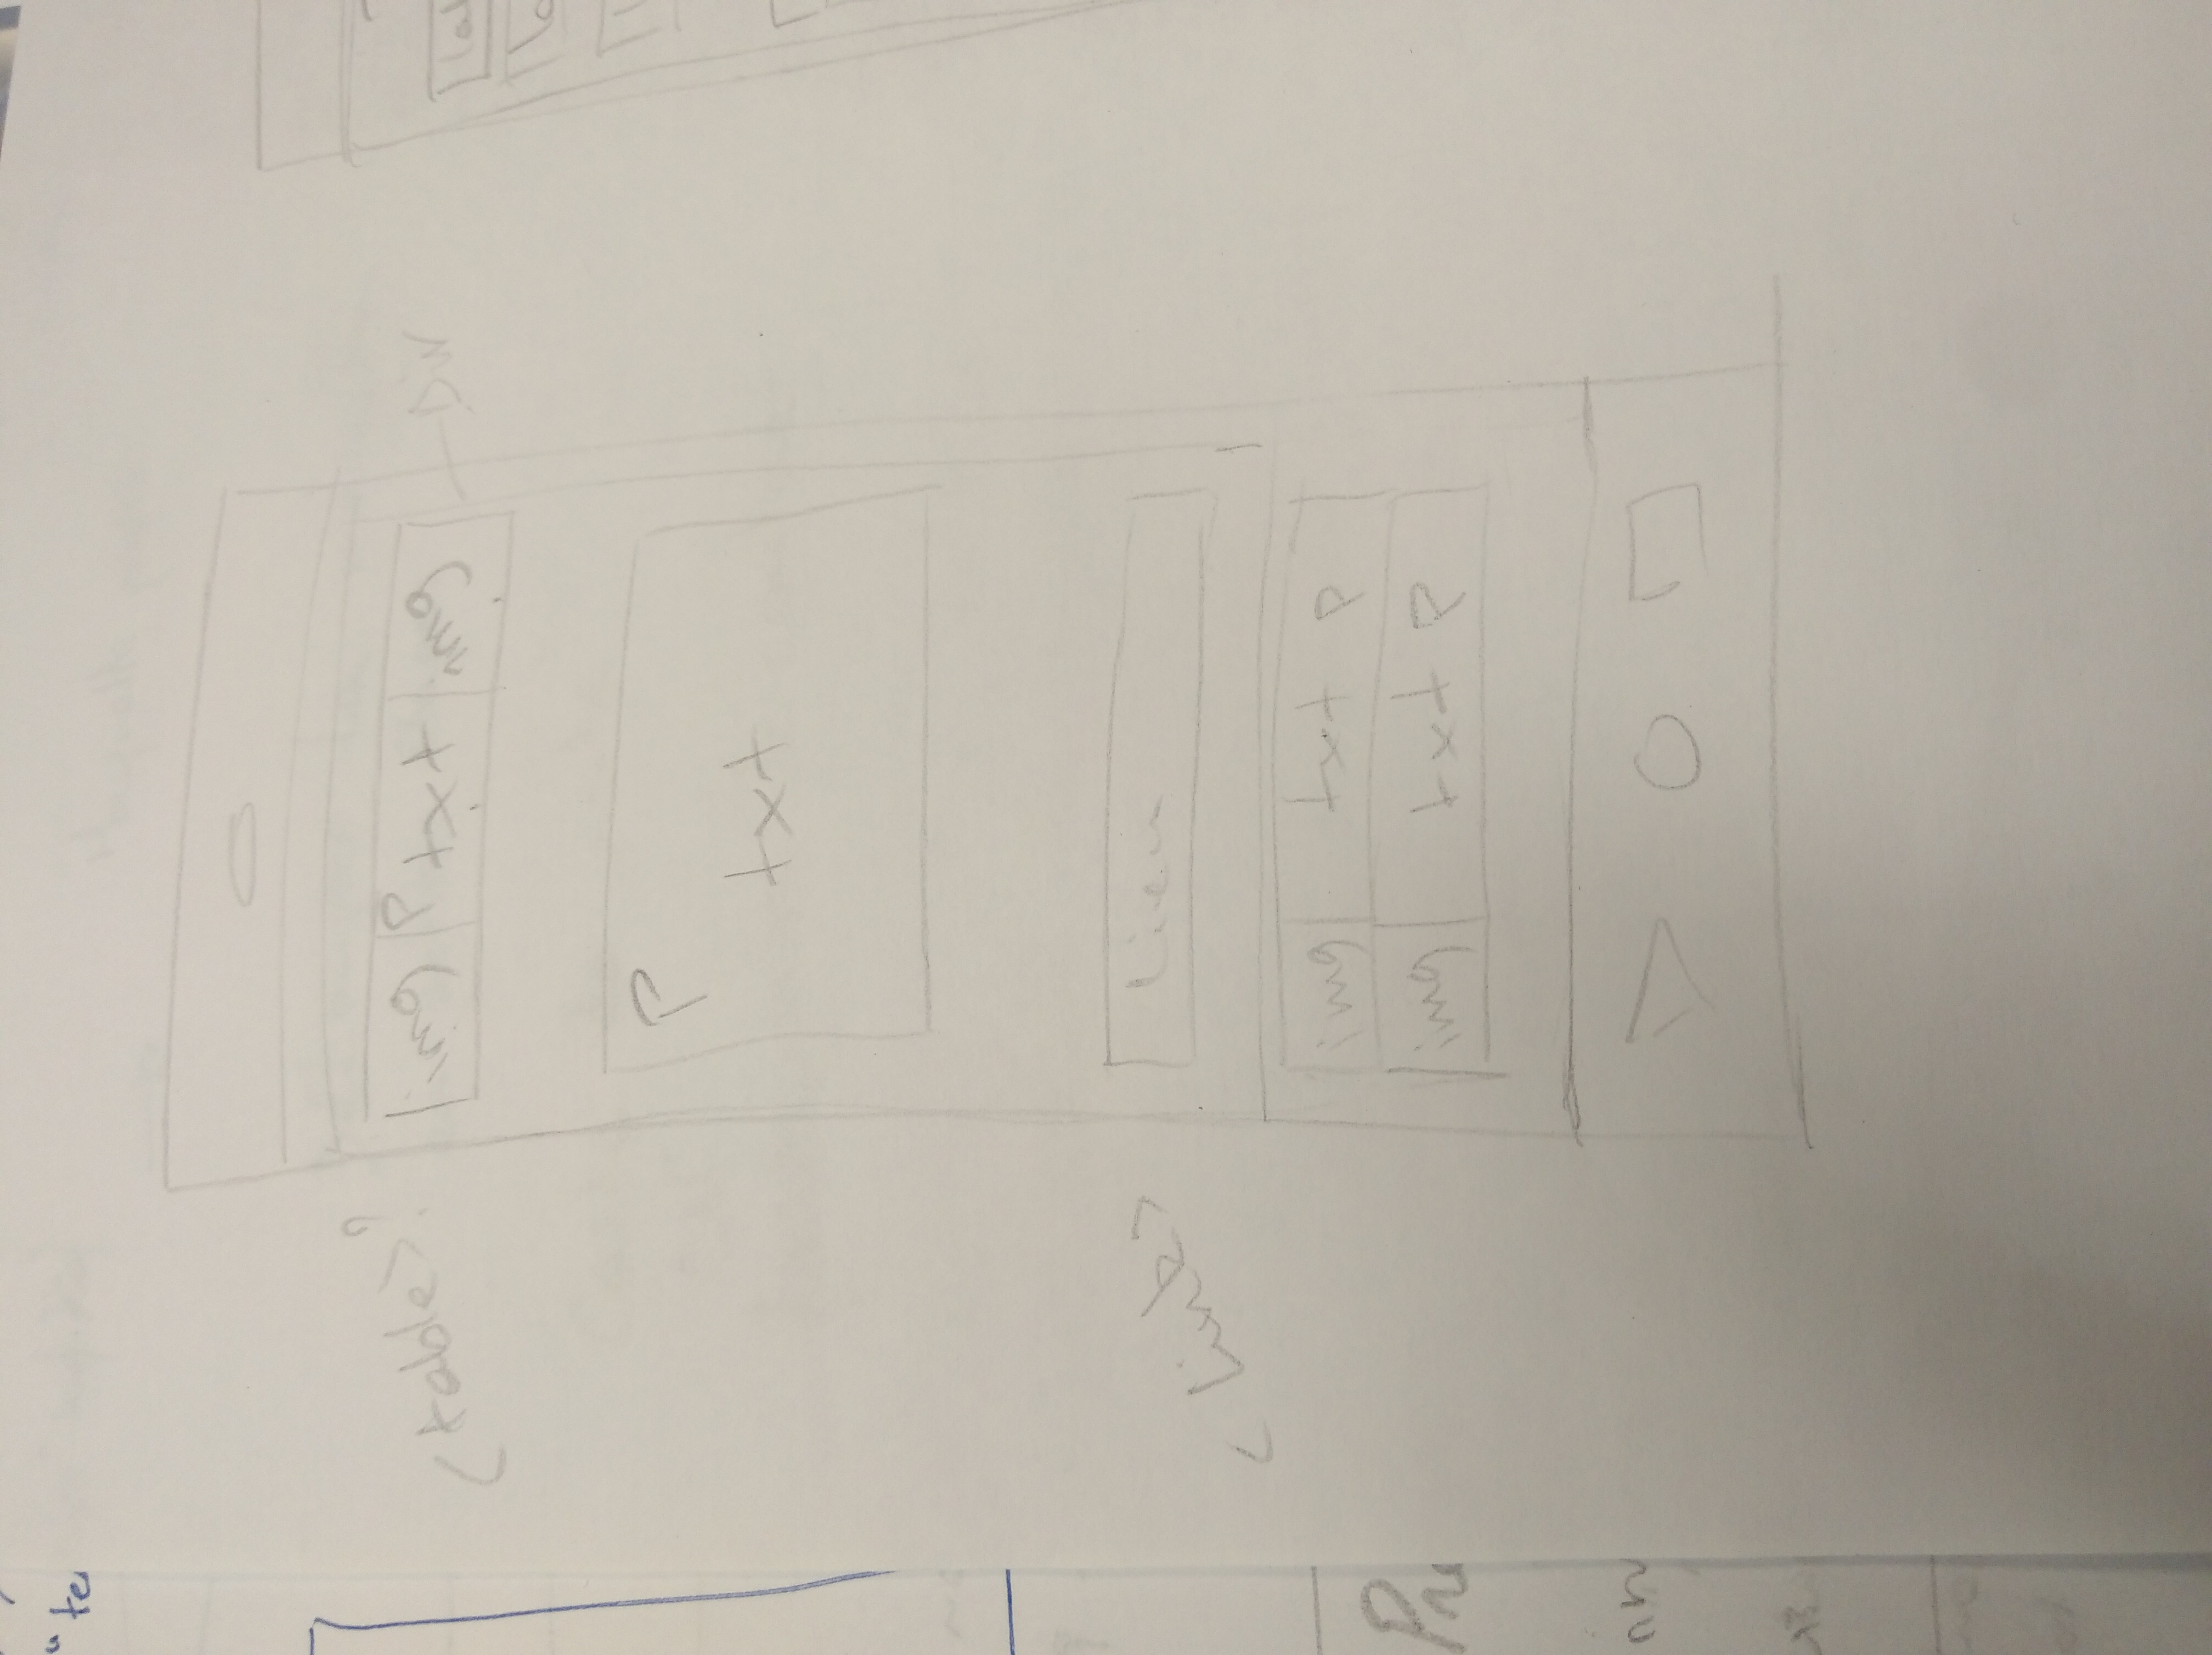 " te
<table>?
img
P
txt
img
Div
P
txt
<Link>
Lien
img
txt P
img
txt P